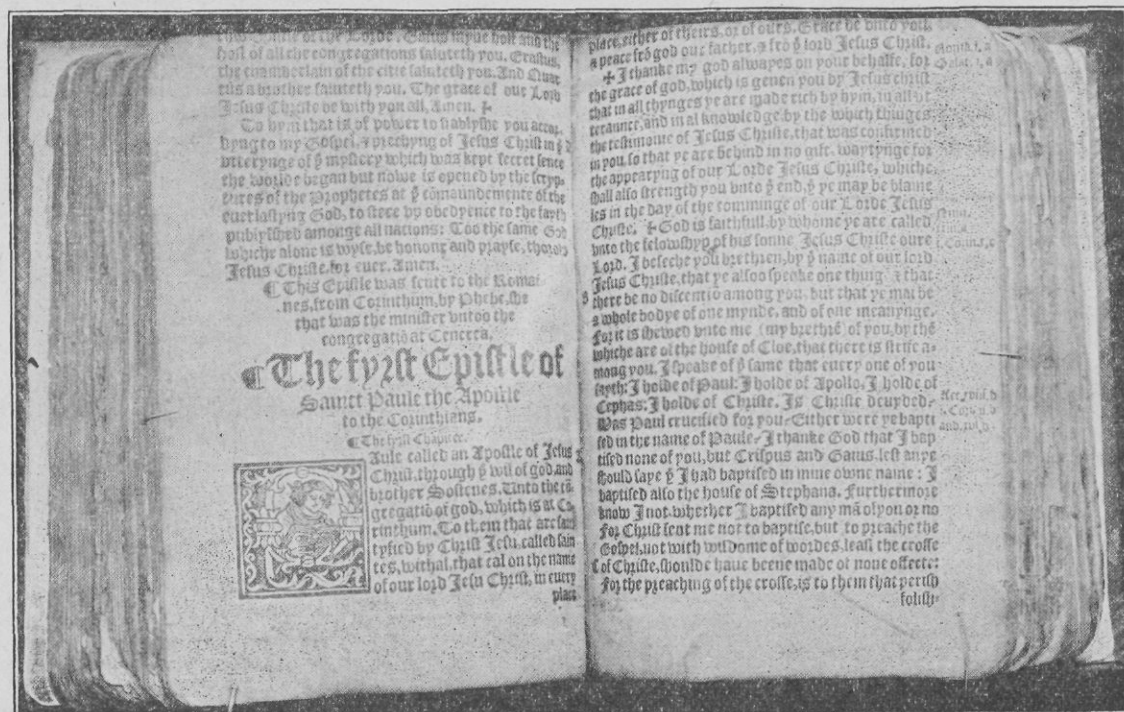 of the Lorde. Gaius myne host and the
host of all the congregations saluteth you. Erastus,
the chamberlain of the citie saluteth you. And Quar
tus a brother saluteth you. The grace of our Lord
Jesus Christe be with you all, Amen. ✠
To hym that is of power to stablyshe you accor
dyng to my Gospel, & prechyng of Jesus Christ in ẏ
vtterynge of ẏ mystery which was kept secret sence
the worlde began but nowe is opened by the scryp
tures of the Prophetes at ẏ cõmaundemente of the
euerlastyng God, to stere vp obedyence to the fayth
publyshed amonge all nations: Too the same God
whiche alone is wyse, be honour and prayse, thorow
Jesus Christe, for euer. Amen.
¶ This Epistle was sente to the Romai
nes, from Corinthum, by Phebe, she
that was the minister vntoo the
congregatiõ at Cencrea.
¶ The fyrst Epistle of
Sainct Paule the Apostle
to the Corinthians.
¶ The fyrst Chapiter.
Aule called an Apostle of Jesus
Christ, through ẏ wil of god, and
brother Sostenes. Unto the cõ
gregatiõ of god, which is at Co
rinthum. To them that are sanc
tyfied by Christ Jesu, called sain
tes, withal, that cal on the name
of our lord Jesu Christ, in euery
place
place, either of theirs, or of ours. Grace be vnto you,
& peace frõ god our father, & frõ ẏ lord Jesus Christ.
✠ I thanke my god alwayes on your behalfe, for
the grace of god, which is geuen you by Jesus christ
that in all thynges ye are made rich by hym, in all vt
teraunce, and in al knowledge by the which thinges
the testimonie of Jesus Christe, that was confirmed
in you, so that ye are behind in no gift, waytynge for
the appearyng of our Lorde Jesus Christe, whiche
shall also strength you vnto ẏ end, ẏ ye may be blame
les in the day of the comminge of our Lorde Jesus
Christe. ✠ God is faithfull, by whome ye are called
vnto the felowshyp of his sonne Jesus Christe oure
Lord. I beseche you brethren, by ẏ name of our lord
Jesus Christe, that ye alsoo speake one thing & that
there be no discentiõ among you, but that ye mai be
a whole bodye of one mynde, and of one meanynge.
For it is shewed vnto me (my brethrẽ) of you, by thẽ
whiche are of the house of Cloe, that there is strife a-
mong you. I speake of ẏ same that euery one of you
sayth: I holde of Paul: I holde of Apollo, I holde of
Cephas: I holde of Christe. Is Christe deuyded.
Was Paul crucified for you. Either were ye bapti
sed in the name of Paule. I thanke God that I bap
tised none of you, but Crispus and Gaius, lest anye
should saye ẏ I had baptised in mine owne name: I
baptised also the house of Stephana. Furthermore
know I not whether I baptised any mã of you or no
For Christ sent me not to baptise, but to preache the
Gospel, not with wisdome of wordes, least the crosse
of Christe, shoulde haue beene made of none effecte:
For the preaching of the crosse, is to them that perish
folish-